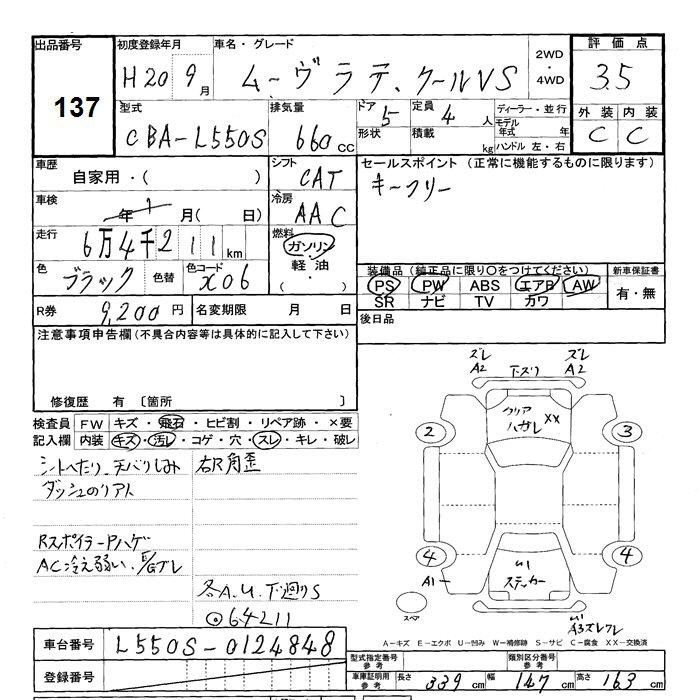 出品番号
137
初度登録年月
H20 9月
車名・グレード
ムーヴラテ.クールVS
2WD
・
4WD
評価点
3.5
外装 内装
C C
型式
CBA-L550S
排気量
660cc
ドア
5
形状
定員
4人
積載
kg
ディーラー・並行
モデル年式 年
ハンドル 左・右
車歴
自家用・( )
シフト
CAT
セールスポイント (正常に機能するものに限ります)
キーフリー
車検
年 月( 日)
冷房
AAC
走行
6万4千211km
燃料
ガソリン
軽油
( ・ )
色
ブラック
色替
色コード
X06
装備品 (純正品に限り○をつけてください)
PS PW ABS エアB AW
SR ナビ TV カワ
新車保証書
有・無
R券
9,200円
名変期限 月 日
後日品
注意事項申告欄(不具合内容等は具体的に記入して下さい)
修復歴 有 〔箇所 〕
検査員記入欄
FW キズ・飛石・ヒビ割・リペア跡・×要
内装 キズ・汚レ・コゲ・穴・スレ・キレ・破レ
シートへたり、天バリしみ
ダッシュのリアト
Rスポイラー Pハゲ
AC冷え弱い、E/Gブレ
右R角歪
各A.U.下廻りS
◎64211
ズレ
A2
下ズリ
ズレ
A2
クリア
ハガレ
XX
2
3
4
4
A1
ステッカー
スペア
A3ズレワレ
A-キズ E-エクボ U-凹み W-補修跡 S-サビ C-腐食 XX-交換済
車台番号
L550S-0124848
登録番号
型式指定番号
参考
類別区分番号
参考
車庫証明用
参考
長さ 339cm 幅 147cm 高さ 163cm